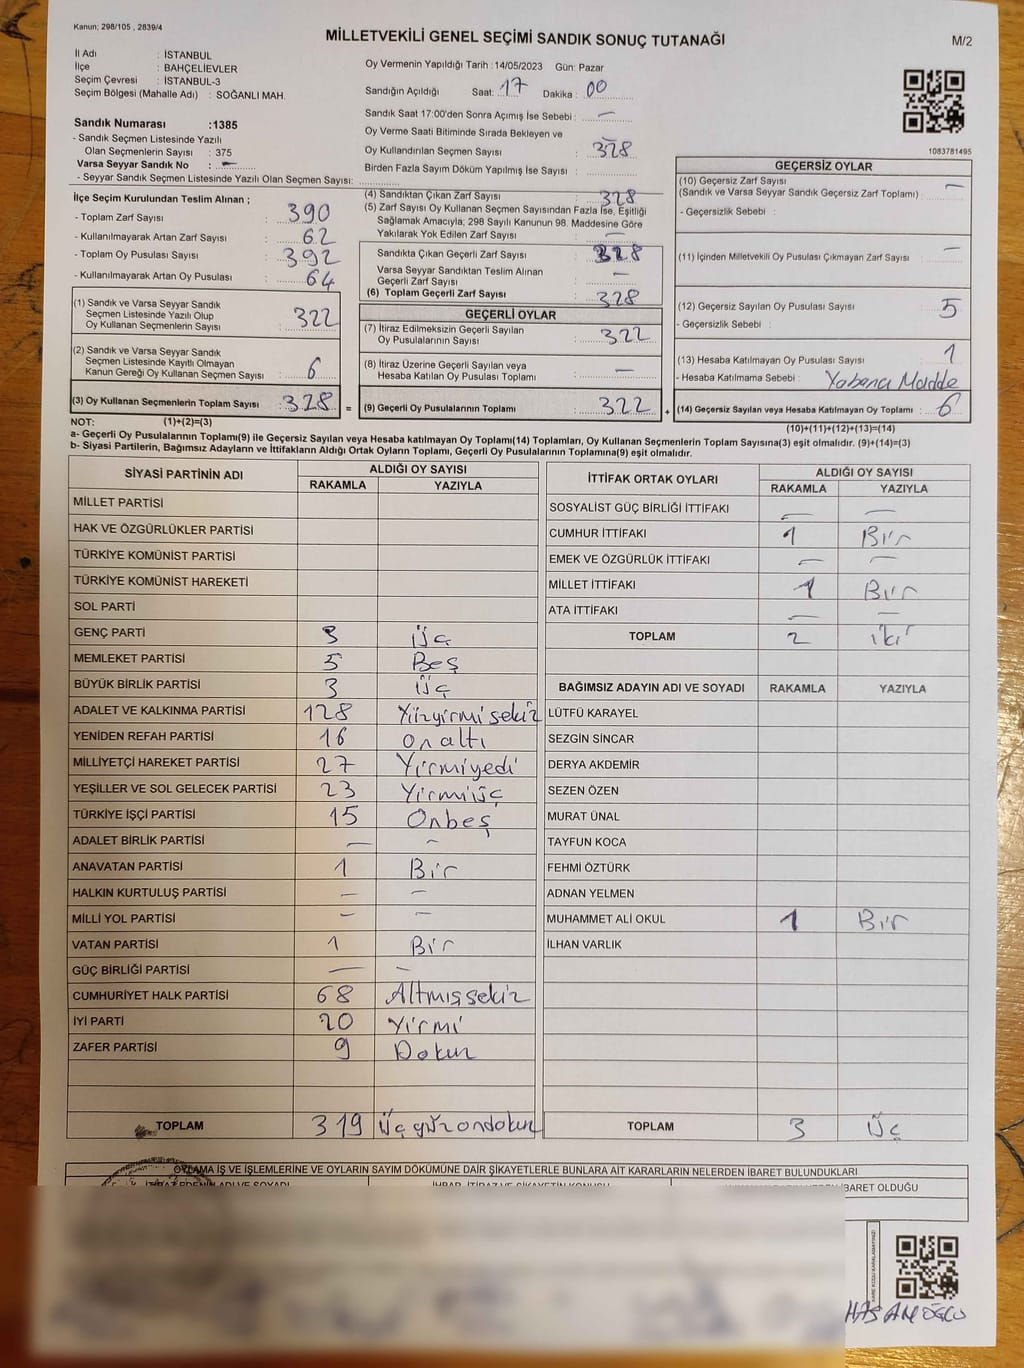 Kanun; 298/105 , 2839/4
MİLLETVEKİLİ GENEL SEÇİMİ SANDIK SONUÇ TUTANAĞI
M/2
İl Adı : İSTANBUL
İlçe : BAHÇELİEVLER
Seçim Çevresi : İSTANBUL-3
Seçim Bölgesi (Mahalle Adı) : SOĞANLI MAH.
Sandık Numarası :1385
- Sandık Seçmen Listesinde Yazılı
Olan Seçmenlerin Sayısı : 375
Varsa Seyyar Sandık No : -
- Seyyar Sandık Seçmen Listesinde Yazılı Olan Seçmen Sayısı:
Oy Vermenin Yapıldığı Tarih :14/05/2023 Gün: Pazar
Sandığın Açıldığı Saat: 17 Dakika : 00
Sandık Saat 17:00'den Sonra Açımış İse Sebebi : -
Oy Verme Saati Bitiminde Sırada Bekleyen ve
Oy Kullandırılan Seçmen Sayısı : 328
Birden Fazla Sayım Döküm Yapılmış İse Sayısı :
1083781495
İlçe Seçim Kurulundan Teslim Alınan ;
- Toplam Zarf Sayısı : 390
- Kullanılmayarak Artan Zarf Sayısı : 62
- Toplam Oy Pusulası Sayısı : 392
- Kullanılmayarak Artan Oy Pusulası : 64
(1) Sandık ve Varsa Seyyar Sandık
Seçmen Listesinde Yazılı Olup
Oy Kullanan Seçmenlerin Sayısı : 322
(2) Sandık ve Varsa Seyyar Sandık
Seçmen Listesinde Kayıtlı Olmayan
Kanun Gereği Oy Kullanan Seçmen Sayısı : 6
(3) Oy Kullanan Seçmenlerin Toplam Sayısı : 328
(4) Sandıktan Çıkan Zarf Sayısı : 328
(5) Zarf Sayısı Oy Kullanan Seçmen Sayısından Fazla İse, Eşitliği
Sağlamak Amacıyla; 298 Sayılı Kanunun 98. Maddesine Göre
Yakılarak Yok Edilen Zarf Sayısı : -
Sandıkta Çıkan Geçerli Zarf Sayısı : 328
Varsa Seyyar Sandıktan Teslim Alınan
Geçerli Zarf Sayısı : -
(6) Toplam Geçerli Zarf Sayısı : 328
GEÇERLİ OYLAR
(7) İtiraz Edilmeksizin Geçerli Sayılan
Oy Pusulalarının Sayısı : 322
(8) İtiraz Üzerine Geçerli Sayılan veya
Hesaba Katılan Oy Pusulası Toplamı : -
= (9) Geçerli Oy Pusulalarının Toplamı : 322
GEÇERSİZ OYLAR
(10) Geçersiz Zarf Sayısı : -
(Sandık ve Varsa Seyyar Sandık Geçersiz Zarf Toplamı)
- Geçersizlik Sebebi :
(11) İçinden Milletvekili Oy Pusulası Çıkmayan Zarf Sayısı : -
(12) Geçersiz Sayılan Oy Pusulası Sayısı : 5
- Geçersizlik Sebebi :
(13) Hesaba Katılmayan Oy Pusulası Sayısı : 1
- Hesaba Katılmama Sebebi : Yabancı Madde
+ (14) Geçersiz Sayılan veya Hesaba Katılmayan Oy Toplamı : 6
NOT: (1)+(2)=(3)
(10)+(11)+(12)+(13)=(14)
a- Geçerli Oy Pusulalarının Toplamı(9) ile Geçersiz Sayılan veya Hesaba katılmayan Oy Toplamı(14) Toplamları, Oy Kullanan Seçmenlerin Toplam Sayısına(3) eşit olmalıdır. (9)+(14)=(3)
b- Siyasi Partilerin, Bağımsız Adayların ve İttifakların Aldığı Ortak Oyların Toplamı, Geçerli Oy Pusulalarının Toplamına(9) eşit olmalıdır.
SİYASİ PARTİNİN ADI ALDIĞI OY SAYISI
RAKAMLA YAZIYLA
MİLLET PARTİSİ
HAK VE ÖZGÜRLÜKLER PARTİSİ
TÜRKİYE KOMÜNİST PARTİSİ
TÜRKİYE KOMÜNİST HAREKETİ
SOL PARTİ
GENÇ PARTİ 3 Üç
MEMLEKET PARTİSİ 5 Beş
BÜYÜK BİRLİK PARTİSİ 3 Üç
ADALET VE KALKINMA PARTİSİ 128 Yüzyirmi sekiz
YENİDEN REFAH PARTİSİ 16 on altı
MİLLİYETÇİ HAREKET PARTİSİ 27 Yirmiyedi
YEŞİLLER VE SOL GELECEK PARTİSİ 23 Yirmiüç
TÜRKİYE İŞÇİ PARTİSİ 15 Onbeş
ADALET BİRLİK PARTİSİ - -
ANAVATAN PARTİSİ 1 Bir
HALKIN KURTULUŞ PARTİSİ - -
MİLLİ YOL PARTİSİ - -
VATAN PARTİSİ 1 Bir
GÜÇ BİRLİĞİ PARTİSİ - -
CUMHURİYET HALK PARTİSİ 68 Altmışsekiz
İYİ PARTİ 20 Yirmi
ZAFER PARTİSİ 9 Dokuz
TOPLAM 319 Üçyüzondokuz
İTTİFAK ORTAK OYLARI ALDIĞI OY SAYISI
RAKAMLA YAZIYLA
SOSYALİST GÜÇ BİRLİĞİ İTTİFAKI - -
CUMHUR İTTİFAKI 1 Bir
EMEK VE ÖZGÜRLÜK İTTİFAKI - -
MİLLET İTTİFAKI 1 Bir
ATA İTTİFAKI - -
TOPLAM 2 iki
BAĞIMSIZ ADAYIN ADI VE SOYADI RAKAMLA YAZIYLA
LÜTFÜ KARAYEL
SEZGİN SİNCAR
DERYA AKDEMİR
SEZEN ÖZEN
MURAT ÜNAL
TAYFUN KOCA
FEHMİ ÖZTÜRK
ADNAN YELMEN
MUHAMMET ALİ OKUL 1 Bir
İLHAN VARLIK
TOPLAM 3 Üç
OYLAMA İŞ VE İŞLEMLERİNE VE OYLARIN SAYIM DÖKÜMÜNE DAİR ŞİKAYETLERLE BUNLARA AİT KARARLARIN NELERDEN İBARET BULUNDUKLARI
İBARET OLDUĞU
HASANOĞLU